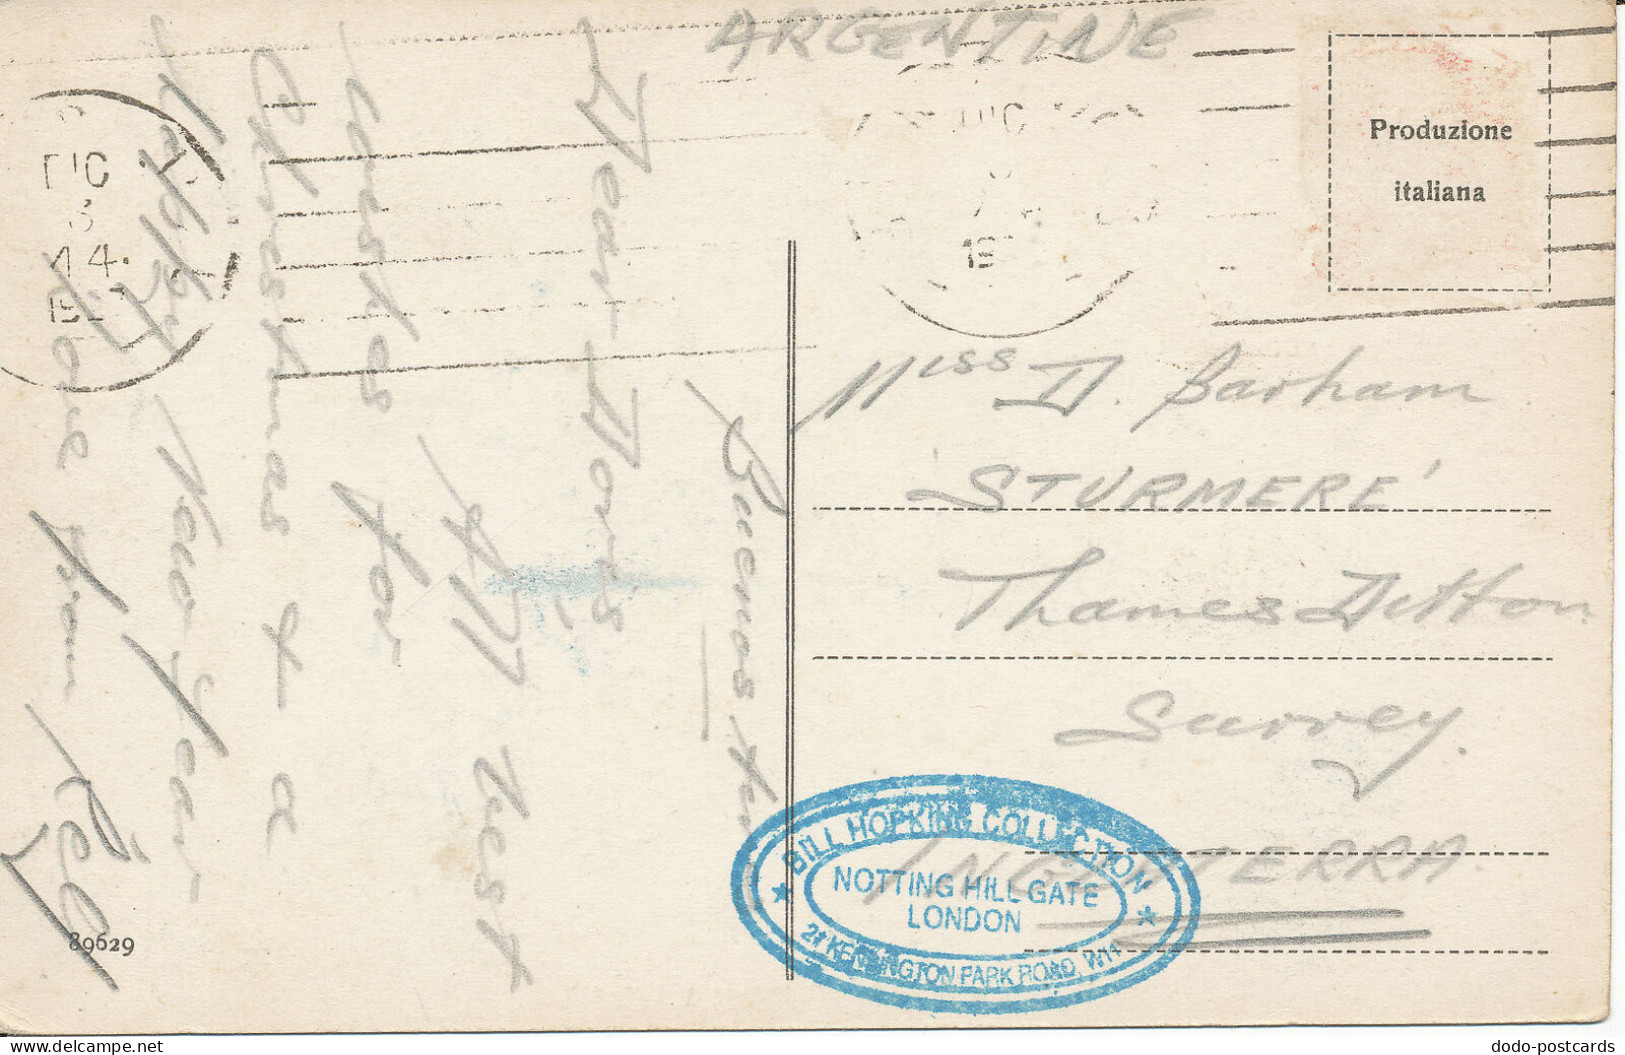 ARGENTINE
Produzione
italiana
DIC
3
14.
DIC
Buenos
Dear Doris
All best
wishes for
Christmas & a
Happy New Year
Love from
Reg
Miss D. Barham
'STURMERE'
Thames Ditton
Surrey.
INGLATERRA
BILL HOPKINS COLLECTION
NOTTING HILL GATE
LONDON
KENSINGTON PARK ROAD, W11
89629
dodo-postcards
www.delcampe.net